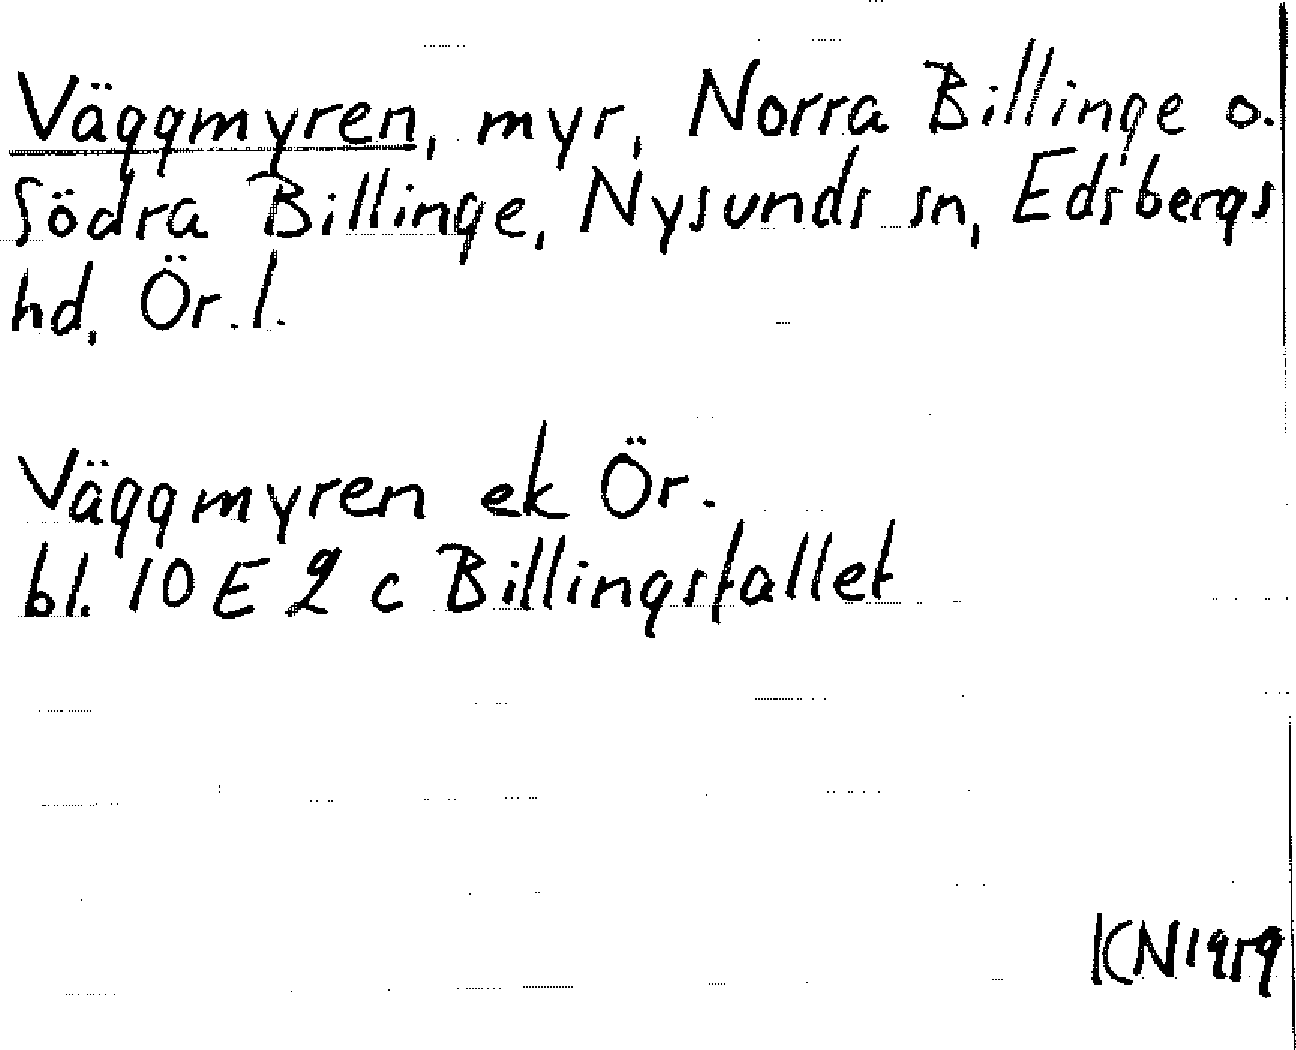 Väggmyren, myr, Norra Billinge o.
Södra Billinge, Nysunds sn, Edsbergs
hd, Ör. l.
Väggmyren ek Ör.
bl. 10 E 2 c Billingsfallet
KN 1959